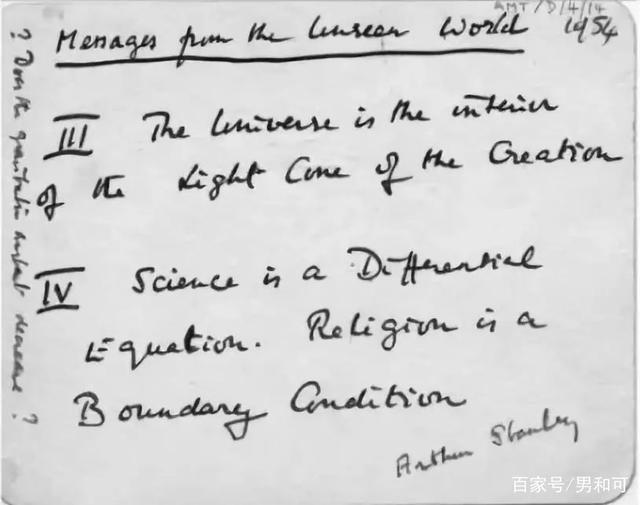 AMT/D/4/14
Messages from the Unseen World 1954
III The Universe is the interior
of the Light Cone of the Creation
IV Science is a Differential
Equation. Religion is a
Boundary Condition
Arthur Stanley
? Does the gravitation constant decrease ?
百家号/男和可